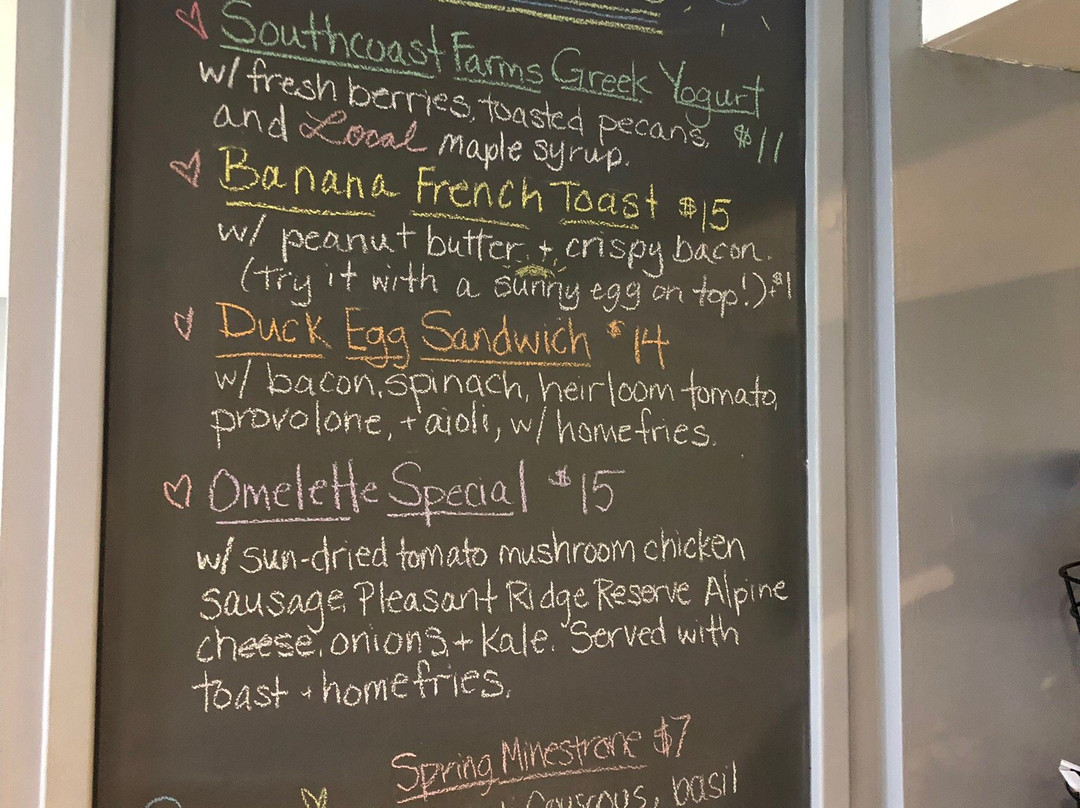 Southcoast Farms Greek Yogurt
w/ fresh berries, toasted pecans, $11
and Local maple syrup.
Banana French Toast $15
w/ peanut butter + crispy bacon.
(Try it with a sunny egg on top!) +$1
Duck Egg Sandwich $14
w/ bacon, spinach, heirloom tomato,
provolone, + aioli, w/ homefries.
Omelette Special $15
w/ sun-dried tomato mushroom chicken
sausage, Pleasant Ridge Reserve Alpine
cheese, onions, + kale. Served with
toast + homefries.
Spring Minestrone $7
couscous, basil